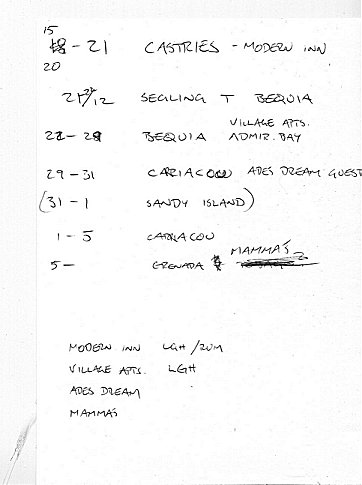 15
18 - 21 CASTRIES - MODERN INN
20
21/22/12 SEGLING T BEQUIA
VILLAGE APTS.
22 - 28 BEQUIA ADMIR. BAY
29 - 31 CARIACOU ADES DREAM GUEST
(31 - 1 SANDY ISLAND)
1 - 5 CARIACOU
MAMMA'S
5 - GRENADA
MODERN INN LGH /RUM
VILLAGE APTS. LGH
ADES DREAM
MAMMA'S